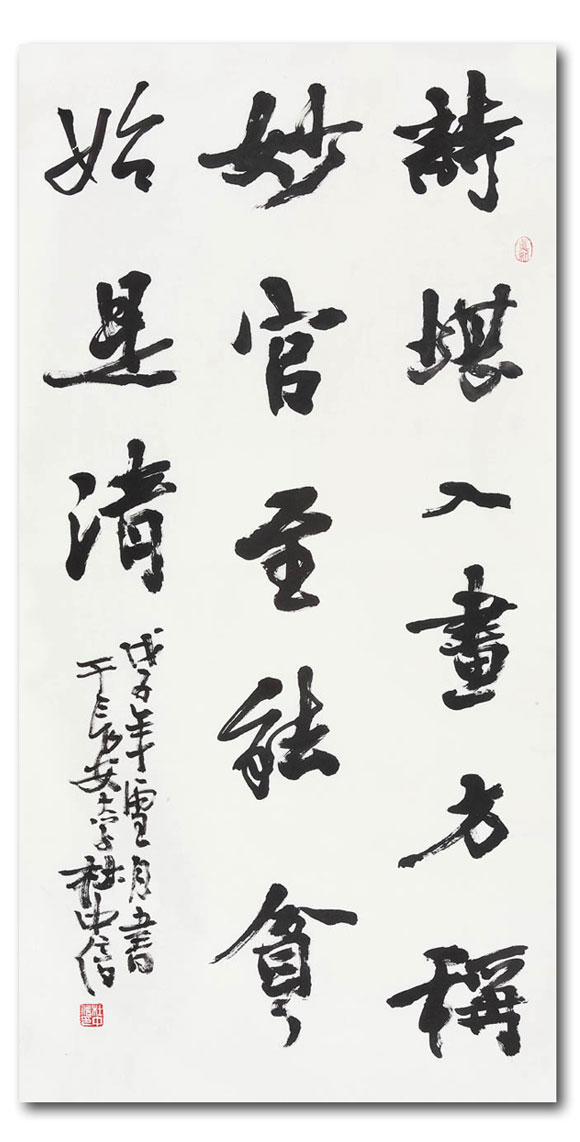 詩堪入畫方稱
妙官至能貧
始是清
戊子年雪月書
于長安大学杜中信